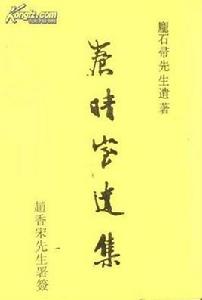 龐石帚先生遺著
養晴室遺集
趙香宋先生署簽